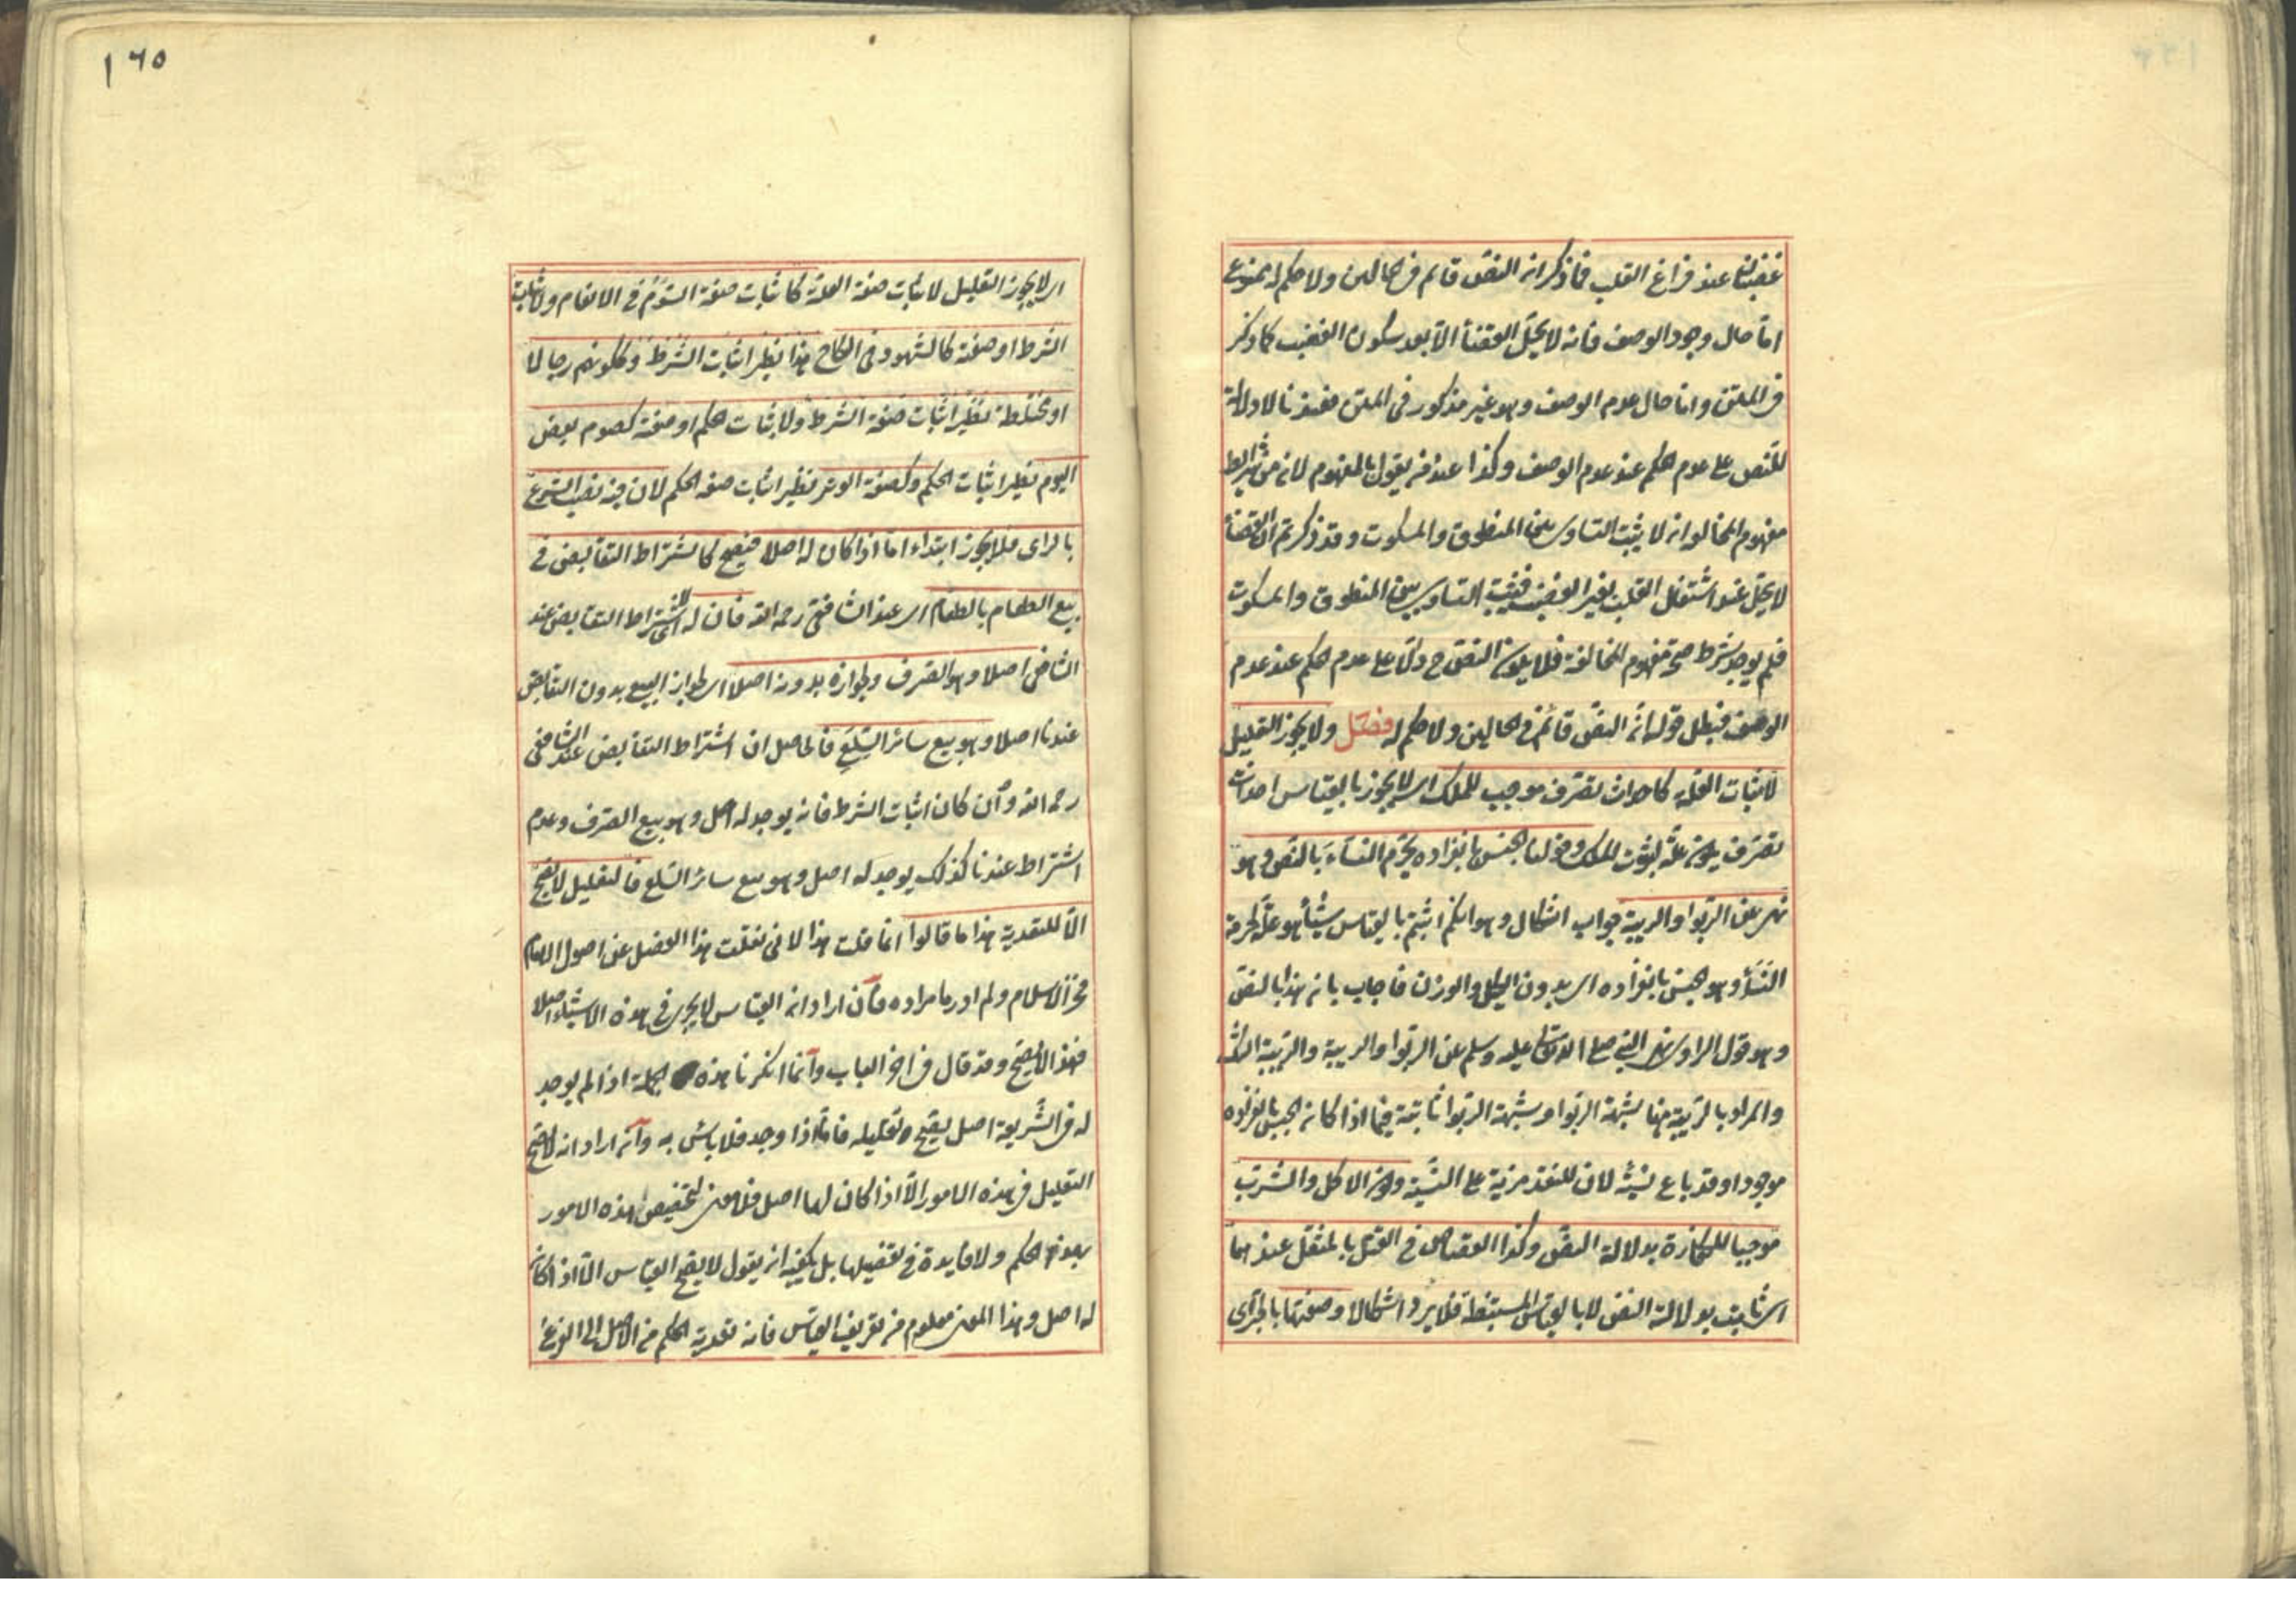 غضبان عند فراغ القلب فما ذكر ان النص قائم فى الحالين ولا حكم له ممنوع
اما حال وجود الوصف فانه لا يحل القضأ الا بعد سكون الغضب كما ذكر
فى المتن واما حال عدم الوصف وهو غير مذكور فى المتن فعندنا لا دلالة
للنص على عدم الحكم عند عدم الوصف وكذا عند من يقول بالمفهوم لان من شرايط
مفهوم المخالفة ان لا يثبت التساوى بين المنطوق والمسكوت وقد ذكرتم ان القضأ
لا يحل عند اشتغال القلب بغير الغضب فيثبت التساوى بين المنطوق والمسكوت
فلم يوجد شرط صحة مفهوم المخالفة فلا يكون النص ح دالا على عدم الحكم عند عدم
الوصف فبطل قوله ان النص قائم فى الحالين ولا حكم له فصل ولا يجوز التعليل
لاثبات العلة كاحداث تصرف موجب للملك اى لا يجوز بالقياس احداث
تصرف يكون علة لثبوت الملك وقولنا الجنس بانفراده يحرم النسأ بالنص وهو
نهى عن الربوا والريبة جواب اشكال وهو انكم اثبتم بالقياس شيأ هو علة لحرمة
النسأ وهو الجنس بانفراده اى بدون الكيل والوزن فاجاب بان هذا بالنص
وهو قول الراوى نهى النبى صلى الله تعالى عليه وسلم عن الربوا والريبة والريبة الشك
والمراد بالريبة هنا شبهة الربوا وشبهة الربوا ثابتة فيما اذا كان الجنس بانفراده
موجودا وقد باع نسيئة لان للنقد مزية على النسية وكون الاكل والشرب
موجبا للكفارة بدلالة النص وكذا القصاص فى القتل بالمثقل عندهما
اى ثابت بدلالة النص لا بالقياس المستنبط فلا يرد اشكالا وصفتها بالجر اى
١٦٥
اى لا يجوز التعليل لاثبات صفة العلة كاثبات صفة السوم فى الانعام ولاثبات
الشرط او صفته كالشهود فى النكاح هذا نظير اثبات الشرط وككونهم رجالا
او مختلطة نظير اثبات صفة الشرط ولاثبات الحكم او صفته كصوم بعض
اليوم نظير اثبات الحكم وكصفة الوتر نظير اثبات صفة الحكم لان فيه نصب الشرع
بالراى فلا يجوز ابتداء اما اذا كان له اصل فيصح كاشتراط التقابض فى
بيع الطعام بالطعام اى عند الشافعى رحمه الله فان له اى لاشتراط التقابض عند
الشافعى اصلا وهو الصرف ولجوازه بدونه اصلا اى لجواز البيع بدون التقابض
عندنا اصلا وهو بيع سائر السلع فالحاصل ان اشتراط التقابض عند الشافعى
رحمه الله وان كان اثبات الشرط فانه يوجد له اصل وهو بيع الصرف وعدم
اشتراط عندنا كذلك يوجد له اصل وهو بيع سائر السلع فالتعليل لا يصح
الا للتعدية هذا ما قالوا انما قلت هذا لانى نقلت هذا الفصل عن اصول الامام
فخر الاسلام ولم ادر ما مراده فان اراد ان القياس لا يجرى فى هذه الاشياء اصلا
فهذا لا يصح وقد قال فى اخر الباب وانما انكرنا هذه الجملة اذا لم يوجد
له فى الشريعة اصل يصح تعليله فاما اذا وجد فلا باس به وان اراد انه لا يصح
التعليل فى هذه الامور الا اذا كان لها اصل فلا معنى لتخصيص هذه الامور
بهذا الحكم ولا فايدة فى تفصيلها بل يكفيه ان يقول لا يصح القياس الا اذا كان
له اصل وهذا المعنى معلوم من تعريف القياس فانه تعدية الحكم من الاصل الى الفرع